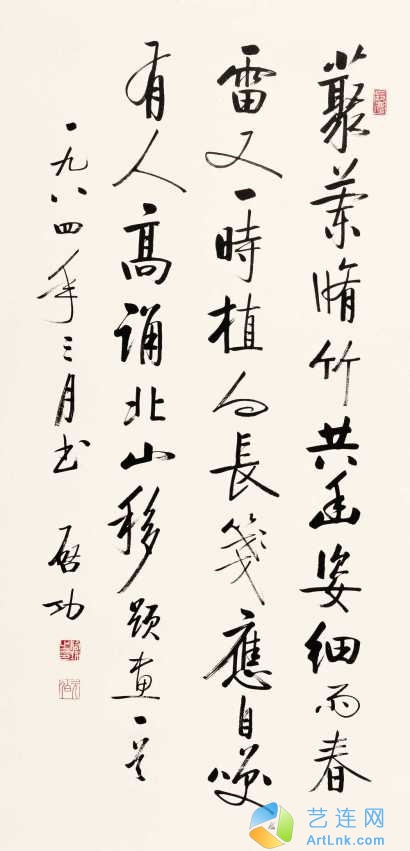 藂蘭脩竹共幽姿細雨春
雷又一時植向長箋應自咲
有人高誦北山移題畫一首
一九八四年三月書 啓功
艺连网
ArtLnk.com